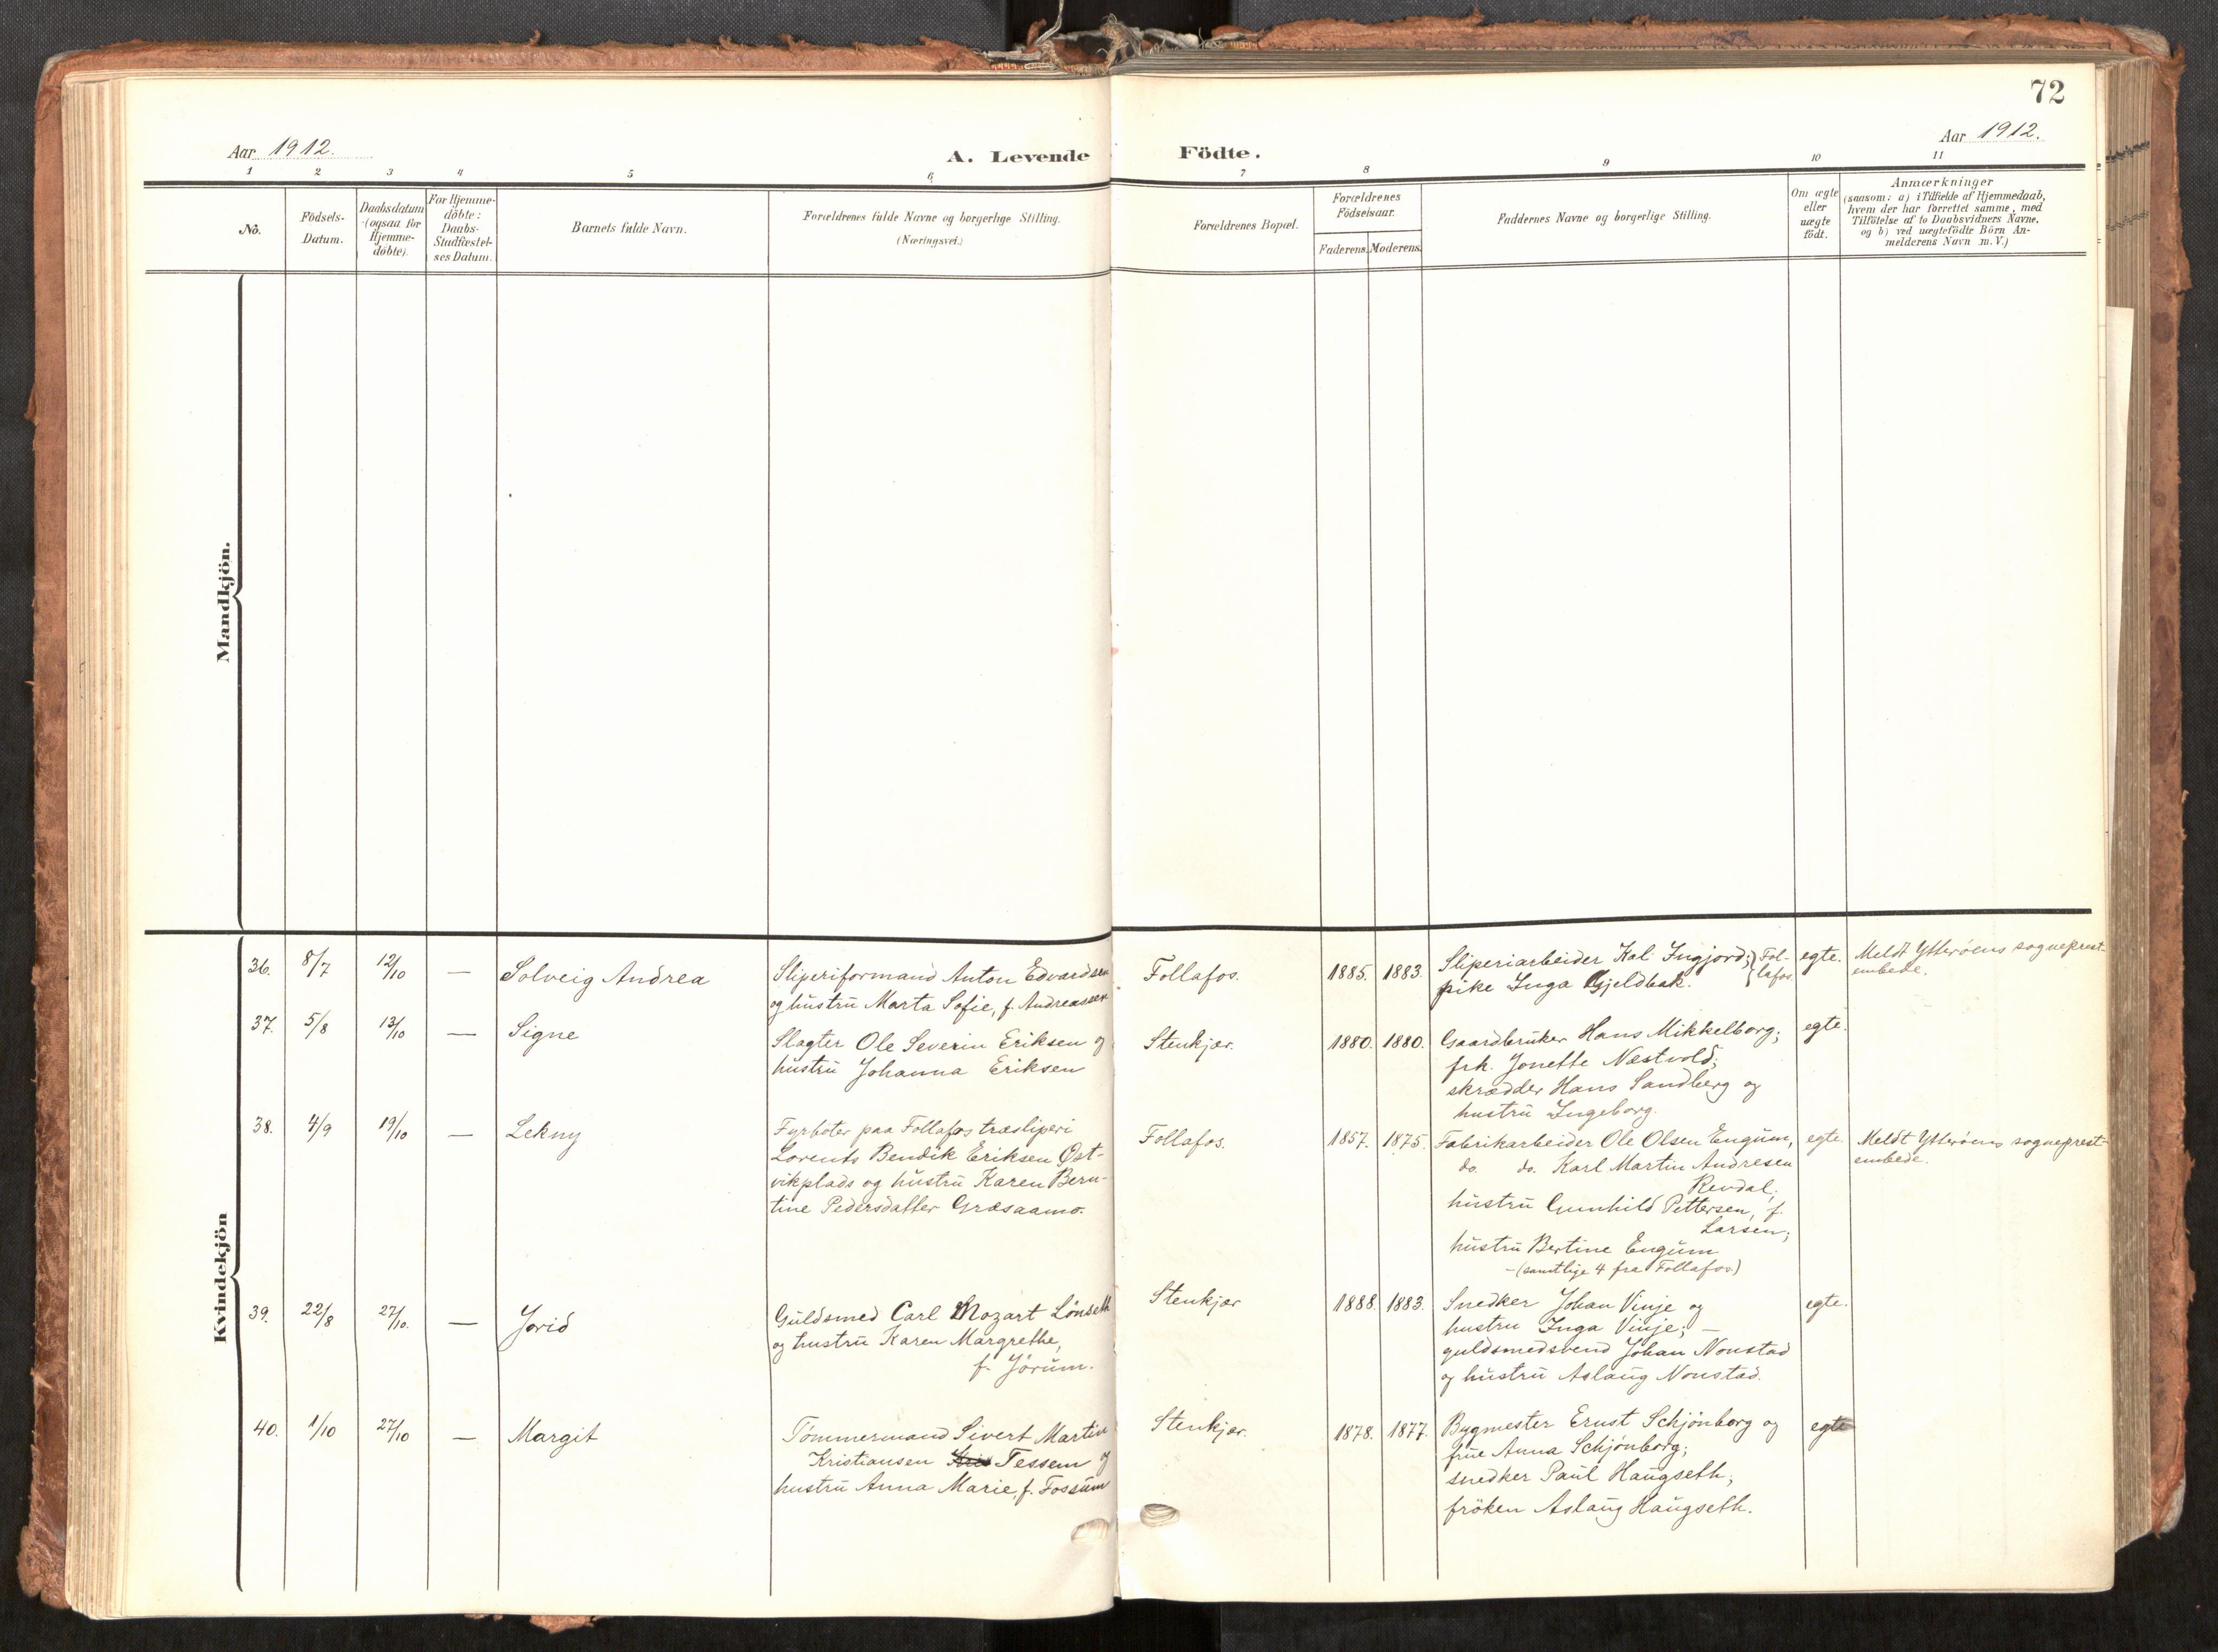 72
Aar 1912.
A. Levende Födte.
Aar 1912.
1 2 3 4 5 6 7 8 9 10 11
No.
Födsels-
Datum.
Daabsdatum
(ogsaa for
Hjemme-
döbte).
For Hjemme-
döbte:
Daabs-
Stadfæstel-
ses Datum.
Barnets fulde Navn.
Forældrenes fulde Navne og borgerlige Stilling.
(Næringsvei.)
Forældrenes Bopæl.
Forældrenes
Födselsaar.
Faderens. Moderens.
Faddernes Navne og borgerlige Stilling.
Om ægte
eller
uægte
födt.
Anmærkninger
(saasom: a) i Tilfælde af Hjemmedaab,
hvem der har forrettet samme, med
Tilföielse af to Daabsvidners Navne,
og b) ved uægtefödte Börn An-
melderens Navn m. V.)
Mandkjön.
Kvindekjön
36. 8/7 12/10 — Solveig Andrea
Sliperiformand Anton Edvardsen
og hustru Marta Sofie, f. Andreassen
Follafos. 1885. 1883.
Sliperiarbeider Kal Ingjord; } Fol-
pike Inga Gjeldbak. { lafos
egte.
Meldt Ytterøens sogneprest-
embede.
37. 5/8 13/10 — Signe
Slagter Ole Severin Eriksen og
hustru Johanna Eriksen
Stenkjær. 1880. 1880.
Gaardbruker Hans Mikkelborg;
frk. Jonette Næstvold;
skrædder Hans Sandberg og
hustru Ingeborg.
egte.
38. 4/9 19/10 — Lekny
Fyrbøter paa Follafos træsliperi
Lorents Bendik Eriksen Øst-
vikplads og hustru Karen Bern-
tine Pedersdatter Græsaamo.
Follafos. 1857. 1875.
Fabrikarbeider Ole Olsen Engum,
do. do. Karl Martin Andresen
Revdal;
hustru Gunhild Pettersen, f.
Larsen;
hustru Bertine Engum
—(samtlige 4 fra Follafos)
egte.
Meldt Ytterøens sogneprest-
embede.
39. 22/8 27/10. — Jorid
Guldsmed Carl Mozart Lønseth
og hustru Karen Margrethe,
f. Jørum.
Stenkjær 1888. 1883.
Snedker Johan Vinje og
hustru Inga Vinje; —
guldsmedsvend Johan Nonstad
og hustru Aslaug Nonstad.
egte.
40. 1/10 27/10 — Margit
Tømmermand Sivert Martin
Kristiansen Tessem og
hustru Anna Marie, f. Fossum
Stenkjær. 1878. 1877.
Bygmester Ernst Schjønborg og
frue Anna Schjønborg;
snedker Paul Haugseth;
frøken Aslaug Haugseth.
egte